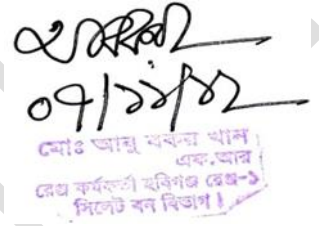 ০৭/১১/১২
মোঃ আবু বকর খান
এফ.আর
রেঞ্জ কর্মকর্তা হবিগঞ্জ রেঞ্জ-১
সিলেট বন বিভাগ।